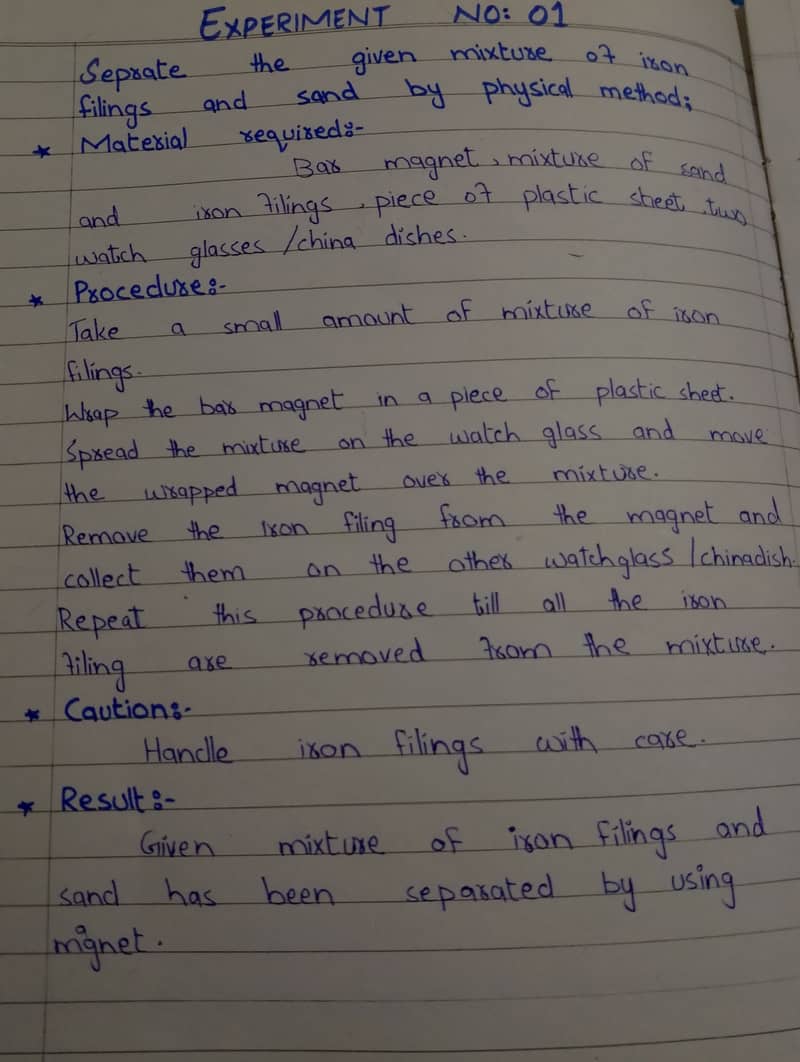 EXPERIMENT NO: 01
Seprate the given mixture of iron
filings and sand by physical method;
★ Material required:-
Bar magnet, mixture of sand
and iron filings, piece of plastic sheet, two
watch glasses /china dishes.
★ Procedure:-
Take a small amount of mixture of iron
filings.
Wrap the bar magnet in a piece of plastic sheet.
Spread the mixture on the watch glass and move
the wrapped magnet over the mixture.
Remove the iron filing from the magnet and
collect them on the other watchglass /chinadish.
Repeat this procedure till all the iron
filing are removed from the mixture.
★ Caution:-
Handle iron filings with care.
★ Result:-
Given mixture of iron filings and
sand has been separated by using
magnet.